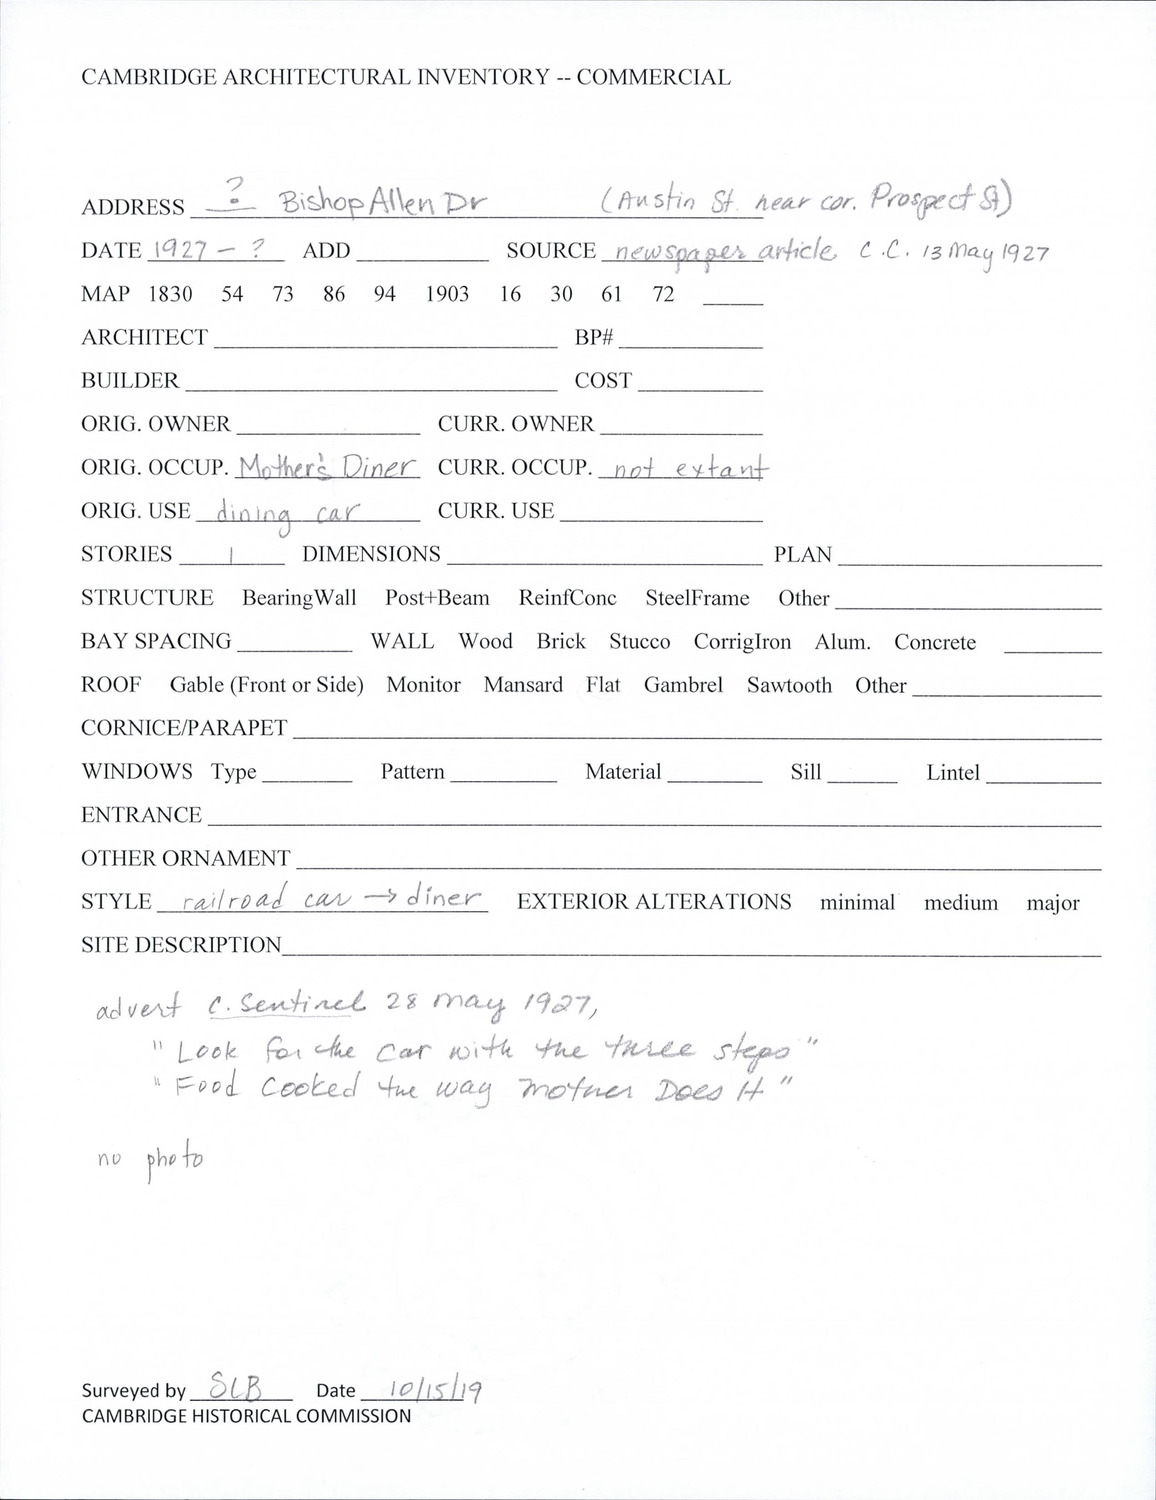 CAMBRIDGE ARCHITECTURAL INVENTORY -- COMMERCIAL
ADDRESS ? Bishop Allen Dr (Austin St. near cor. Prospect St)
DATE 1927 - ? ADD SOURCE newspaper article C.C. 13 May 1927
MAP 1830 54 73 86 94 1903 16 30 61 72
ARCHITECT BP#
BUILDER COST
ORIG. OWNER CURR. OWNER
ORIG. OCCUP. Mother's Diner CURR. OCCUP. not extant
ORIG. USE dining car CURR. USE
STORIES 1 DIMENSIONS PLAN
STRUCTURE BearingWall Post+Beam ReinfConc SteelFrame Other
BAY SPACING WALL Wood Brick Stucco CorrigIron Alum. Concrete
ROOF Gable (Front or Side) Monitor Mansard Flat Gambrel Sawtooth Other
CORNICE/PARAPET
WINDOWS Type Pattern Material Sill Lintel
ENTRANCE
OTHER ORNAMENT
STYLE railroad car → diner EXTERIOR ALTERATIONS minimal medium major
SITE DESCRIPTION
advert C. Sentinel 28 May 1927,
"Look for the Car with the three steps"
"Food Cooked the way Mother Does It"
no photo
Surveyed by SLB Date 10/15/19
CAMBRIDGE HISTORICAL COMMISSION